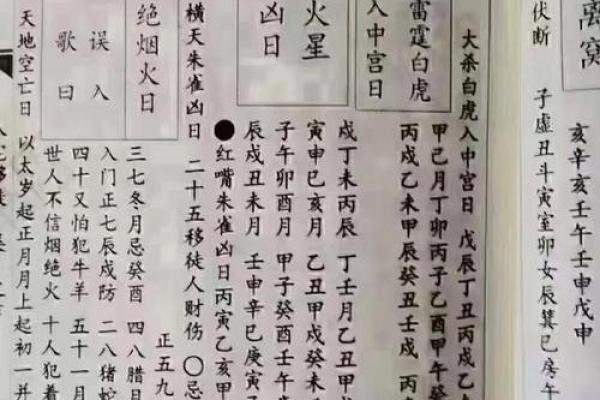 离窝
亥辛亥壬午壬申戊申
伏断 子虚丑斗寅室卯女辰箕巳房午
大杀白虎入中宫日 戊辰丁丑丙戌乙
雷霆白虎
入中宫日
甲己月丁卯丙子乙酉甲午
丙戌乙未甲辰癸丑壬戌 丙
火星
凶日
戌丁未丙辰 丁壬月乙丑甲
寅申巳亥月 乙丑甲戌癸未
子午卯酉月 甲子癸酉壬午
辰戌丑未月 壬申辛巳庚寅
●红嘴朱雀凶日丙寅乙亥甲
横天朱雀凶日 二十五移徒人财伤 〇忌
绝烟火日
正五九
误入
歌曰
三七冬月忌癸酉 四八腊月
入门正七辰戌防 二八猪蛇
四十又怕犯牛羊 五十一月
世人不信烟绝火 十人犯着
天地空亡日 以太岁起正月月上起初一并